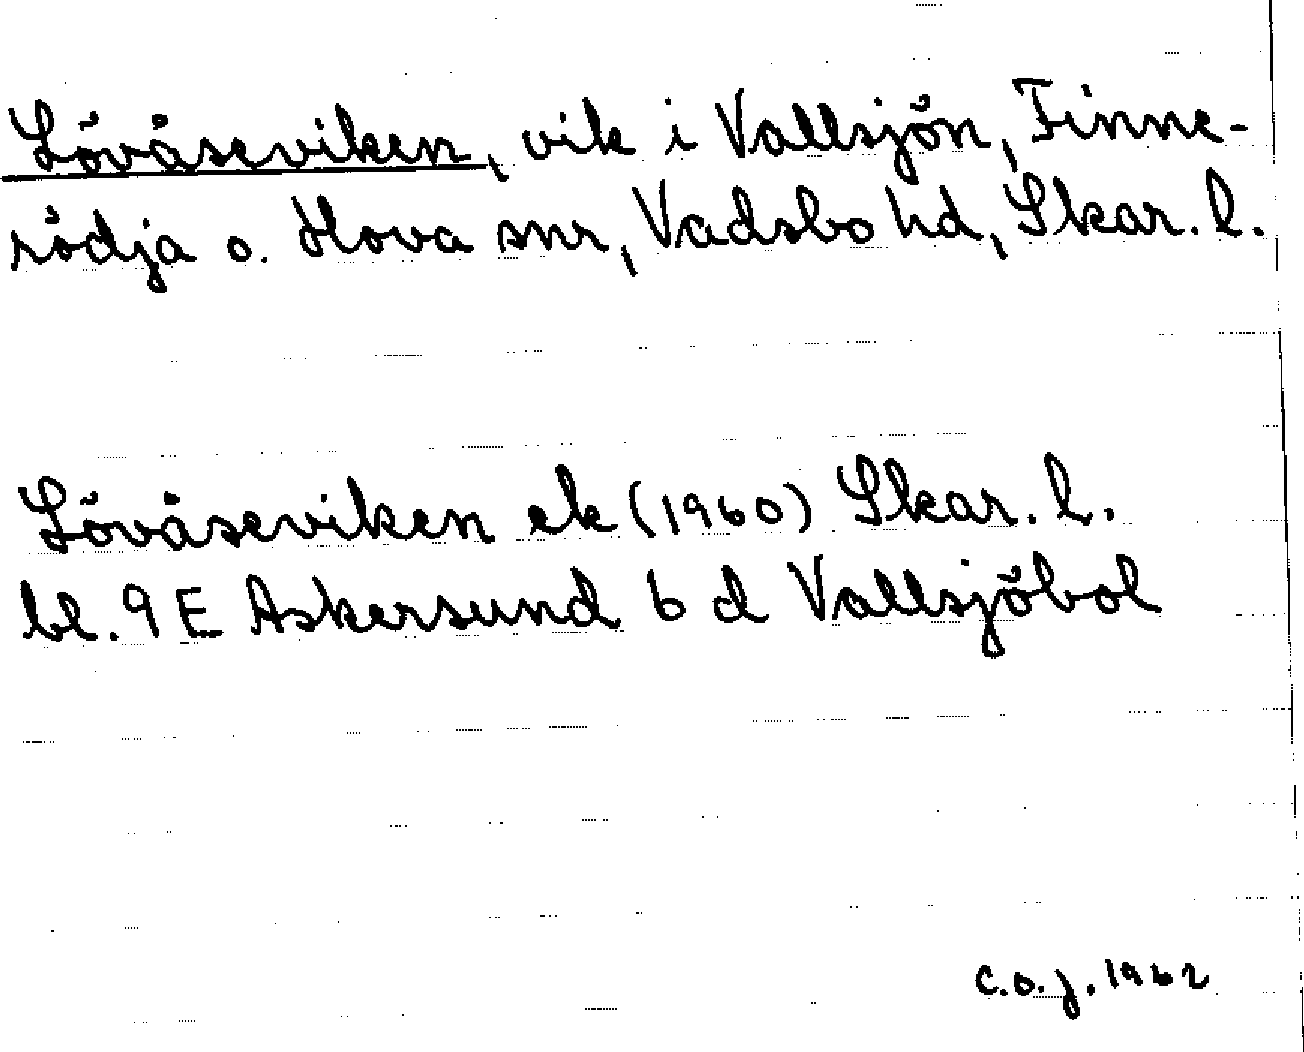 Lövåseviken, vik i Vallsjön, Finne-
rödja o. Hova snr, Vadsbo hd, Skar. l.
Lövåseviken ek (1960) Skar. l.
bl. 9 E Askersund 6 d Vallsjöbol
C.O.J. 1962